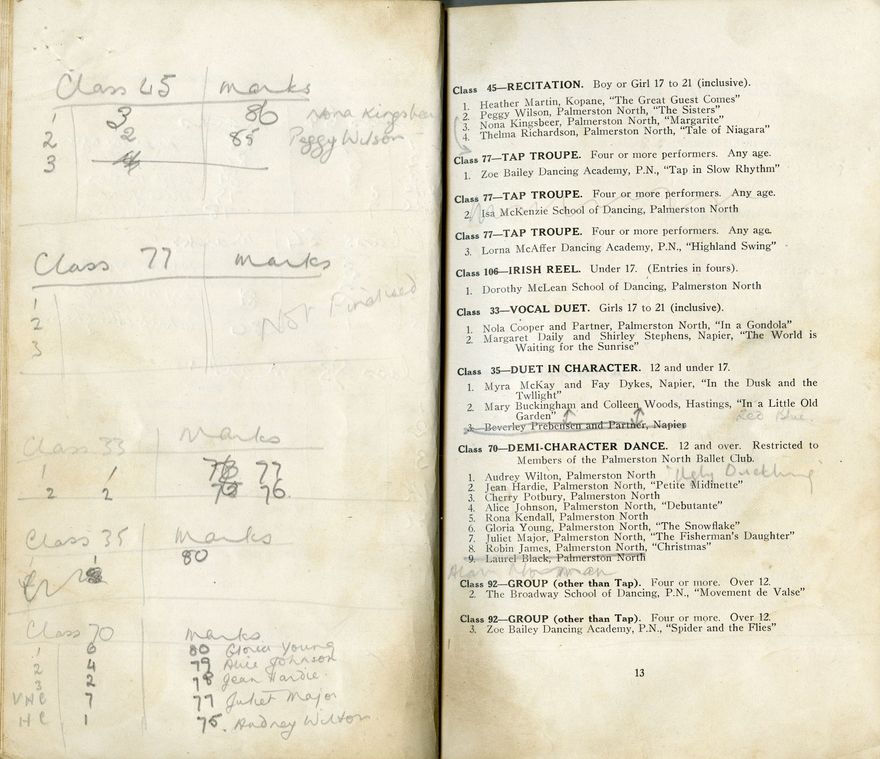 Class 45 marks
1 3 86 Nona Kingsbeer
2 2 85 Peggy Wilson
3
Class 77 marks
1
2 Not Finalised
3
Class 33 marks
1 1 77
2 2 76.
Class 35 marks
1 1 80
Class 70 marks
1 6 80 Gloria Young
2 4 79 Alice Johnson
3 2 78 Jean Hardie
VHC 7 77 Juliet Major
HC 1 75. Audrey Wilton
Class 45—RECITATION. Boy or Girl 17 to 21 (inclusive).
1. Heather Martin, Kopane, “The Great Guest Comes”
2. Peggy Wilson, Palmerston North, “The Sisters”
3. Nona Kingsbeer, Palmerston North, “Margarite”
4. Thelma Richardson, Palmerston North, “Tale of Niagara”
Class 77—TAP TROUPE. Four or more performers. Any age.
1. Zoe Bailey Dancing Academy, P.N., “Tap in Slow Rhythm”
Class 77—TAP TROUPE. Four or more performers. Any age.
2. Isa McKenzie School of Dancing, Palmerston North
Class 77—TAP TROUPE. Four or more performers. Any age.
3. Lorna McAffer Dancing Academy, P.N., “Highland Swing”
Class 106—IRISH REEL. Under 17. (Entries in fours).
1. Dorothy McLean School of Dancing, Palmerston North
Class 33—VOCAL DUET. Girls 17 to 21 (inclusive).
1. Nola Cooper and Partner, Palmerston North, “In a Gondola”
2. Margaret Daily and Shirley Stephens, Napier, “The World is
Waiting for the Sunrise”
Class 35—DUET IN CHARACTER. 12 and under 17.
1. Myra McKay and Fay Dykes, Napier, “In the Dusk and the
Twllight”
2. Mary Buckingham and Colleen Woods, Hastings, “In a Little Old
Garden” Red Blue
3. Beverley Prebensen and Partner, Napier
Class 70—DEMI-CHARACTER DANCE. 12 and over. Restricted to
Members of the Palmerston North Ballet Club.
1. Audrey Wilton, Palmerston North "Ugly Duckling"
2. Jean Hardie, Palmerston North, “Petite Midinette”
3. Cherry Potbury, Palmerston North
4. Alice Johnson, Palmerston North, “Debutante”
5. Rona Kendall, Palmerston North
6. Gloria Young, Palmerston North, “The Snowflake”
7. Juliet Major, Palmerston North, “The Fisherman’s Daughter”
8. Robin James, Palmerston North, “Christmas”
9. Laurel Black, Palmerston North
Class 92—GROUP (other than Tap). Four or more. Over 12.
2. The Broadway School of Dancing, P.N., “Movement de Valse”
Class 92—GROUP (other than Tap). Four or more. Over 12.
3. Zoe Bailey Dancing Academy, P.N., “Spider and the Flies”
13